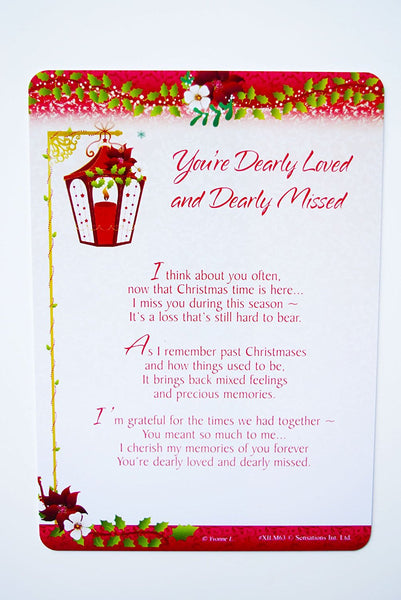 You're Dearly Loved
and Dearly Missed
I think about you often,
now that Christmas time is here...
I miss you during this season ~
It's a loss that's still hard to bear.
As I remember past Christmases
and how things used to be,
It brings back mixed feelings
and precious memories.
I'm grateful for the times we had together ~
You meant so much to me...
I cherish my memories of you forever
You're dearly loved and dearly missed.
© Yvonne L. #XILM63 © Sensations Int. Ltd.